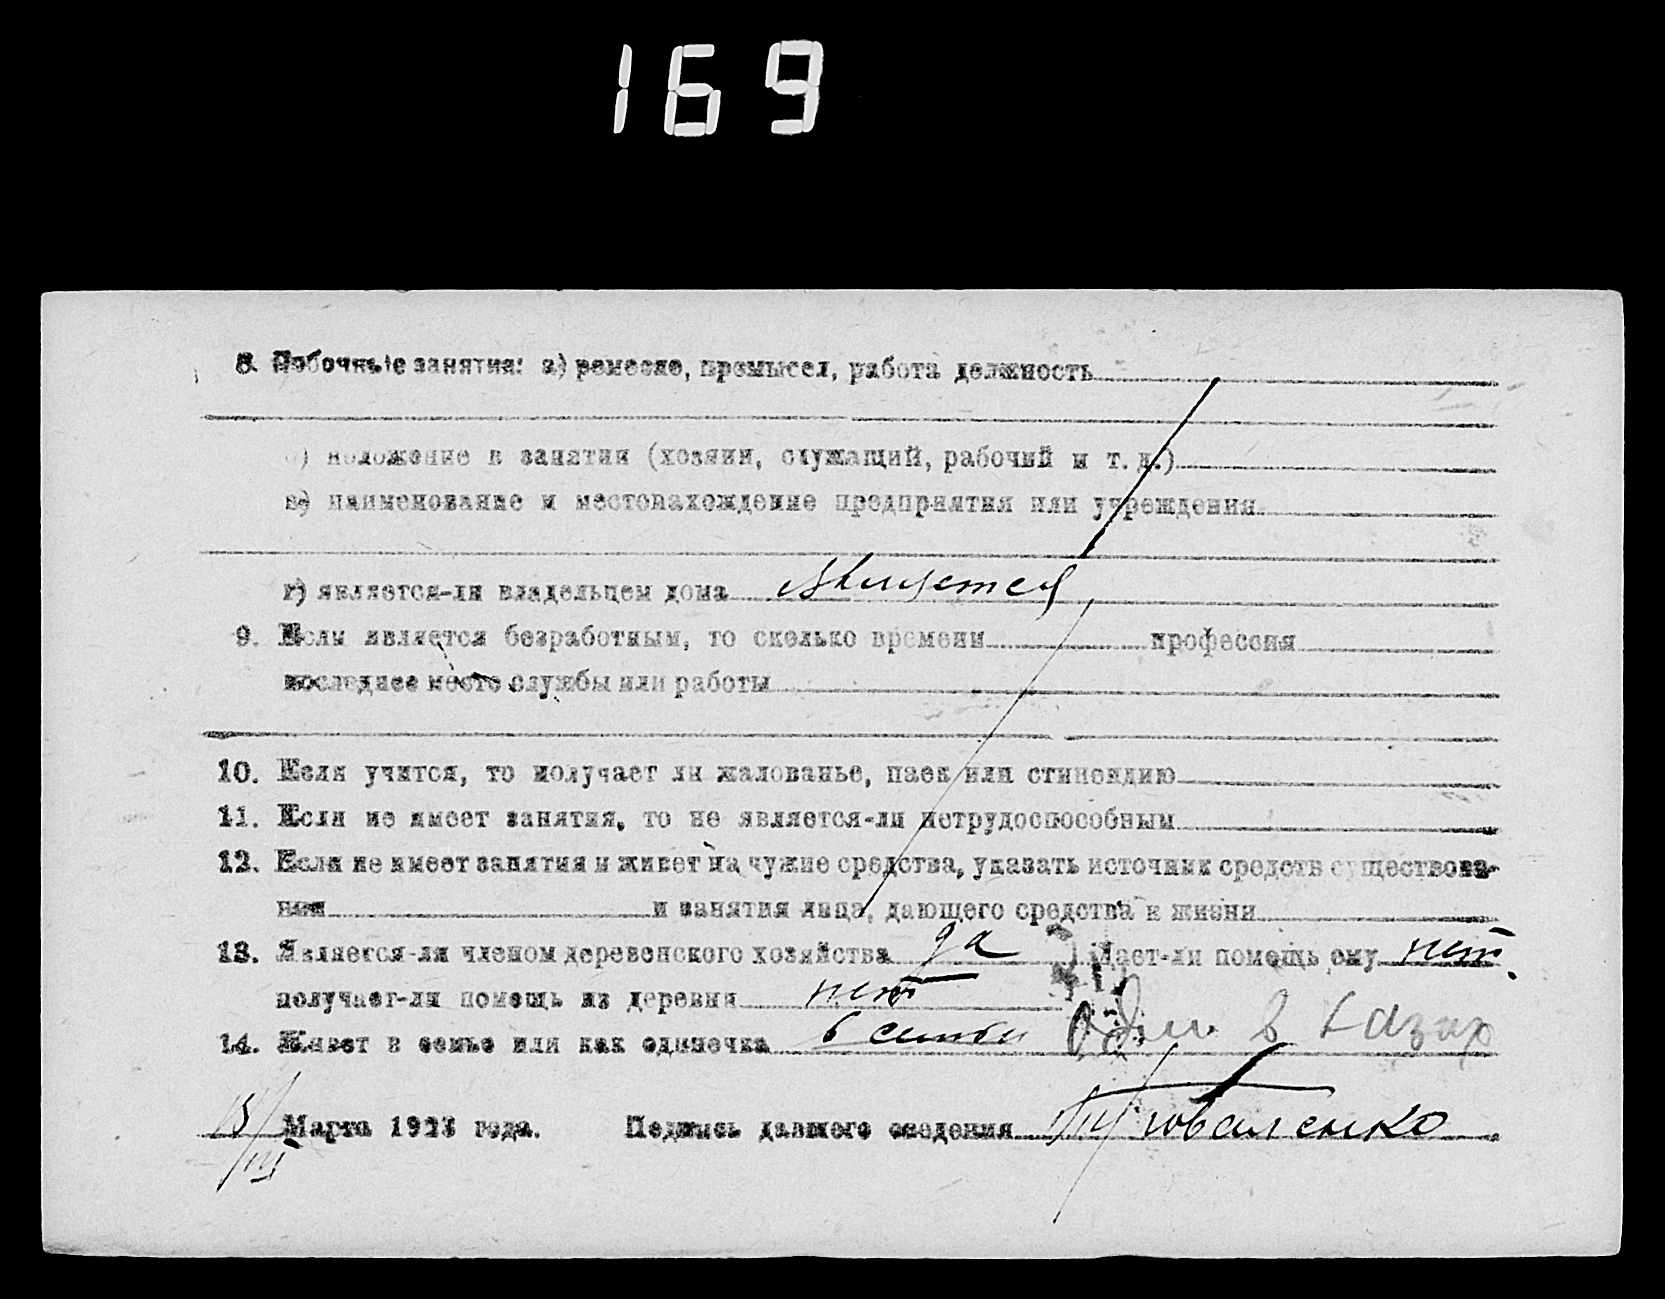 169
8. Побочные занятия: а) ремесло, промысел, работа должность
б) положение в занятии (хозяин, служащий, рабочий и т. д.)
в) наименование и местонахождение предприятия или учреждения
г) является-ли владельцем дома
9. Если является безработным, то сколько времени профессия
последнее место службы или работы
10. Если учится, то получает ли жалованье, паек или стипендию
11. Если не имеет занятия, то не является-ли нетрудоспособным
12. Если не имеет занятия и живет на чужие средства, указать источник средств существова-
ния и занятия лица, дающего средства к жизни
13. Является-ли членом деревенского хозяйства да Дает-ли помощь ему нет
получает-ли помощь из деревни нет
14. Живет в семье или как одиночка в семьи
15/III Марта 1923 года. Подпись давшего сведения